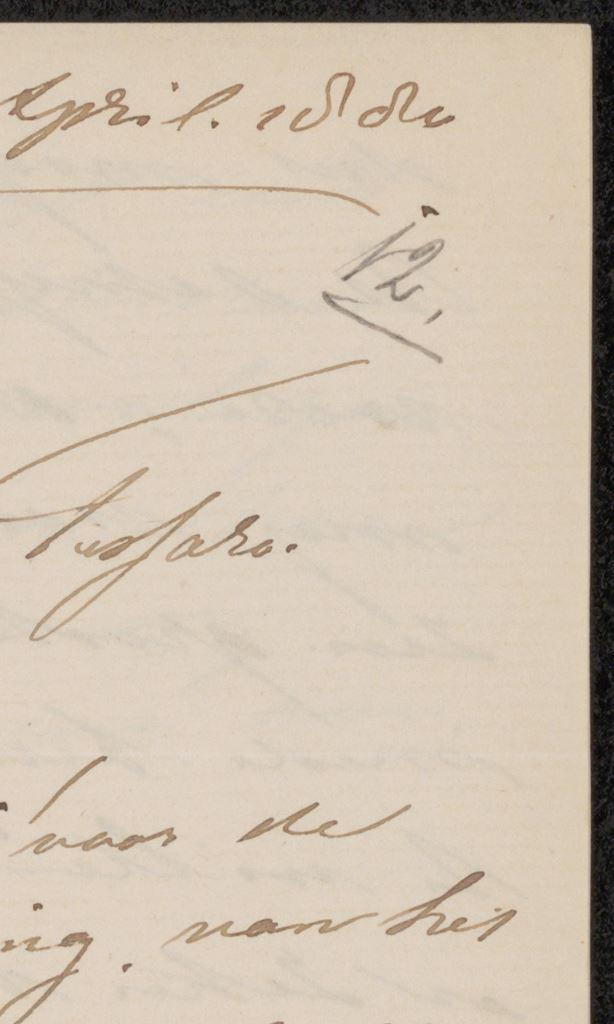 April. 1880
12.
Tissaro.
voor de
ing. van het